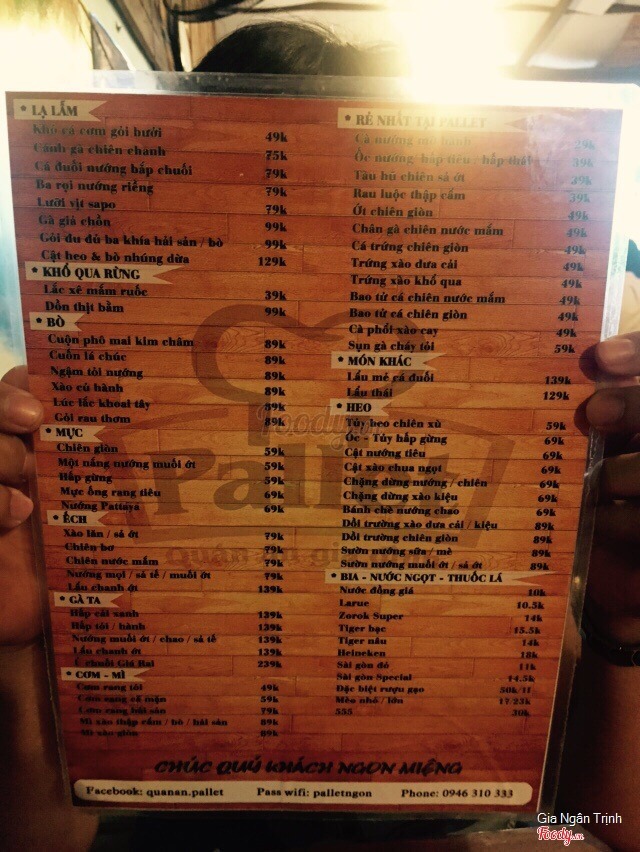 * LẠ LẮM
Khô cá cơm gỏi bưởi 49k
Cánh gà chiên chanh 75k
Cá đuối nướng bắp chuối 79k
Ba rọi nướng riềng 79k
Lưỡi vịt sapo 79k
Gà giả chồn 99k
Gỏi đu đủ ba khía hải sản / bò 99k
Cật heo & bò nhúng dừa 129k
* KHỔ QUA RỪNG
Lắc xê mắm ruốc 39k
Dồn thịt bằm 99k
* BÒ
Cuộn phô mai kim châm 89k
Cuốn lá chúc 89k
Ngậm tỏi nướng 89k
Xào củ hành 89k
Lúc lắc khoai tây 89k
Gỏi rau thơm 89k
* MỰC
Chiên giòn 59k
Một nắng nướng muối ớt 59k
Hấp gừng 59k
Mực ống rang tiêu 69k
Nướng Pattaya 69k
* ẾCH
Xào lăn / sả ớt 79k
Chiên bơ 79k
Chiên nước mắm 79k
Nướng mọi / sa tế / muối ớt 79k
Lẩu chanh ớt 139k
* GÀ TA
Hấp cải xanh 139k
Hấp tỏi / hành 139k
Nướng muối ớt / chao / sa tế 139k
Lẩu chanh ớt 139k
Ủ chuối Giá Rai 239k
* CƠM - MÌ
Cơm rang tỏi 49k
Cơm rang cá mặn 59k
Cơm rang hải sản 79k
Mì xào thập cẩm / bò / hải sản 89k
Mì xào giòn 89k
* RẺ NHẤT TẠI PALLET
Cà nướng mỡ hành 29k
Ốc nướng/hấp tiêu / hấp thái 39k
Tàu hủ chiên sả ớt 39k
Rau luộc thập cẩm 39k
Ớt chiên giòn 49k
Chân gà chiên nước mắm 49k
Cá trứng chiên giòn 49k
Trứng xào dưa cải 49k
Trứng xào khổ qua 49k
Bao tử cá chiên nước mắm 49k
Bao tử cá chiên giòn 49k
Cà phổi xào cay 49k
Sụn gà cháy tỏi 59k
* MÓN KHÁC
Lẩu mẻ cá đuối 139k
Lẩu thái 129k
* HEO
Tủy heo chiên xù 59k
Óc - Tủy hấp gừng 69k
Cật nướng tiêu 69k
Cật xào chua ngọt 69k
Chặng dừng nướng / chiên 69k
Chặng dừng xào kiệu 69k
Bánh chè nướng chao 69k
Dồi trường xào dưa cải / kiệu 89k
Dồi trường chiên giòn 89k
Sườn nướng sữa / mè 89k
Sườn nướng muối ớt / sả ớt 89k
* BIA - NƯỚC NGỌT - THUỐC LÁ
Nước đồng giá 10k
Larue 10.5k
Zorok Super 14k
Tiger bạc 15.5k
Tiger nâu 14k
Heineken 18k
Sài gòn đỏ 11k
Sài gòn Special 14.5k
Đặc biệt rượu gạo 50k/1l
Mèo nhỏ / lớn 17/23k
555 30k
Pallet
CHÚC QUÝ KHÁCH NGON MIỆNG
Facebook: quanan.pallet Pass wifi: palletngon Phone: 0946 310 333
Gia Ngân Trịnh
Foody.vn